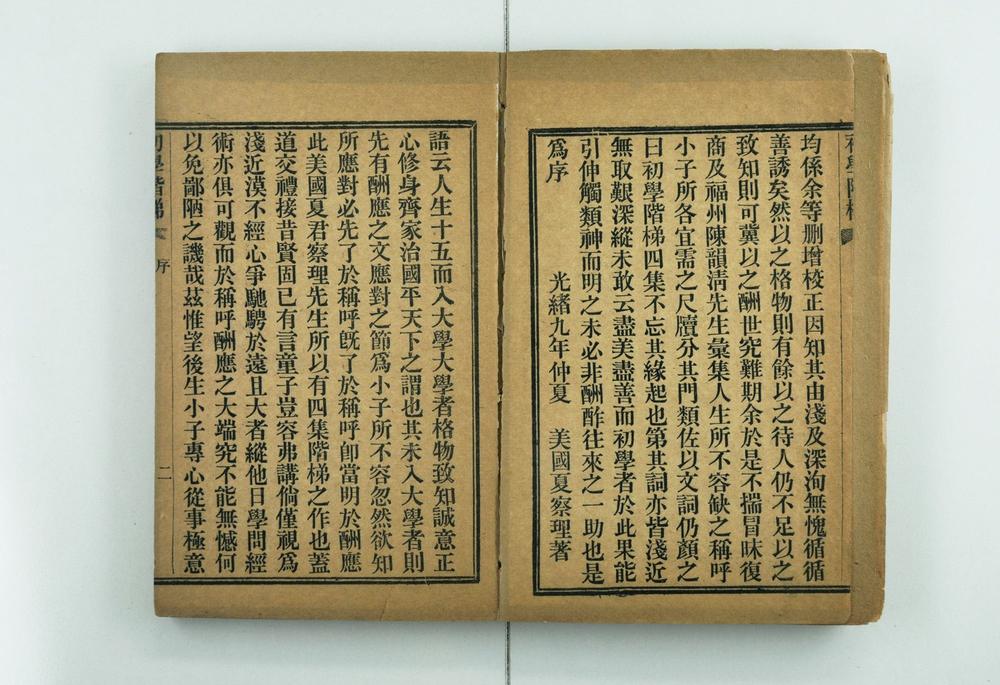 均係余等刪增校正因知其由淺及深洵無愧循循
善誘矣然以之格物則有餘以之待人仍不足以之
致知則可冀以之酬世究難期余於是不揣冒昧復
商及福州陳韻清先生彙集人生所不容缺之稱呼
小子所各宜需之尺牘分其門類佐以文詞仍顏之
曰初學階梯四集不忘其緣起也第其詞亦皆淺近
無取艱深縱未敢云盡美盡善而初學者於此果能
引伸觸類神而明之未必非酬酢往來之一助也是
爲序
光緒九年仲夏 美國夏察理著
語云人生十五而入大學大學者格物致知誠意正
心修身齊家治國平天下之謂也其未入大學者則
先有酬應之文應對之節爲小子所不容忽然欲知
所應對必先了於稱呼旣了於稱呼卽當明於酬應
此美國夏君察理先生所以有四集階梯之作也蓋
道交禮接昔賢固已有言童子豈容弗講倘僅視爲
淺近漠不經心爭馳騁於遠且大者縱他日學問經
術亦俱可觀而於稱呼酬應之大端究不能無憾何
以免鄙陋之譏哉茲惟望後生小子專心從事極意
初學階梯 序 二